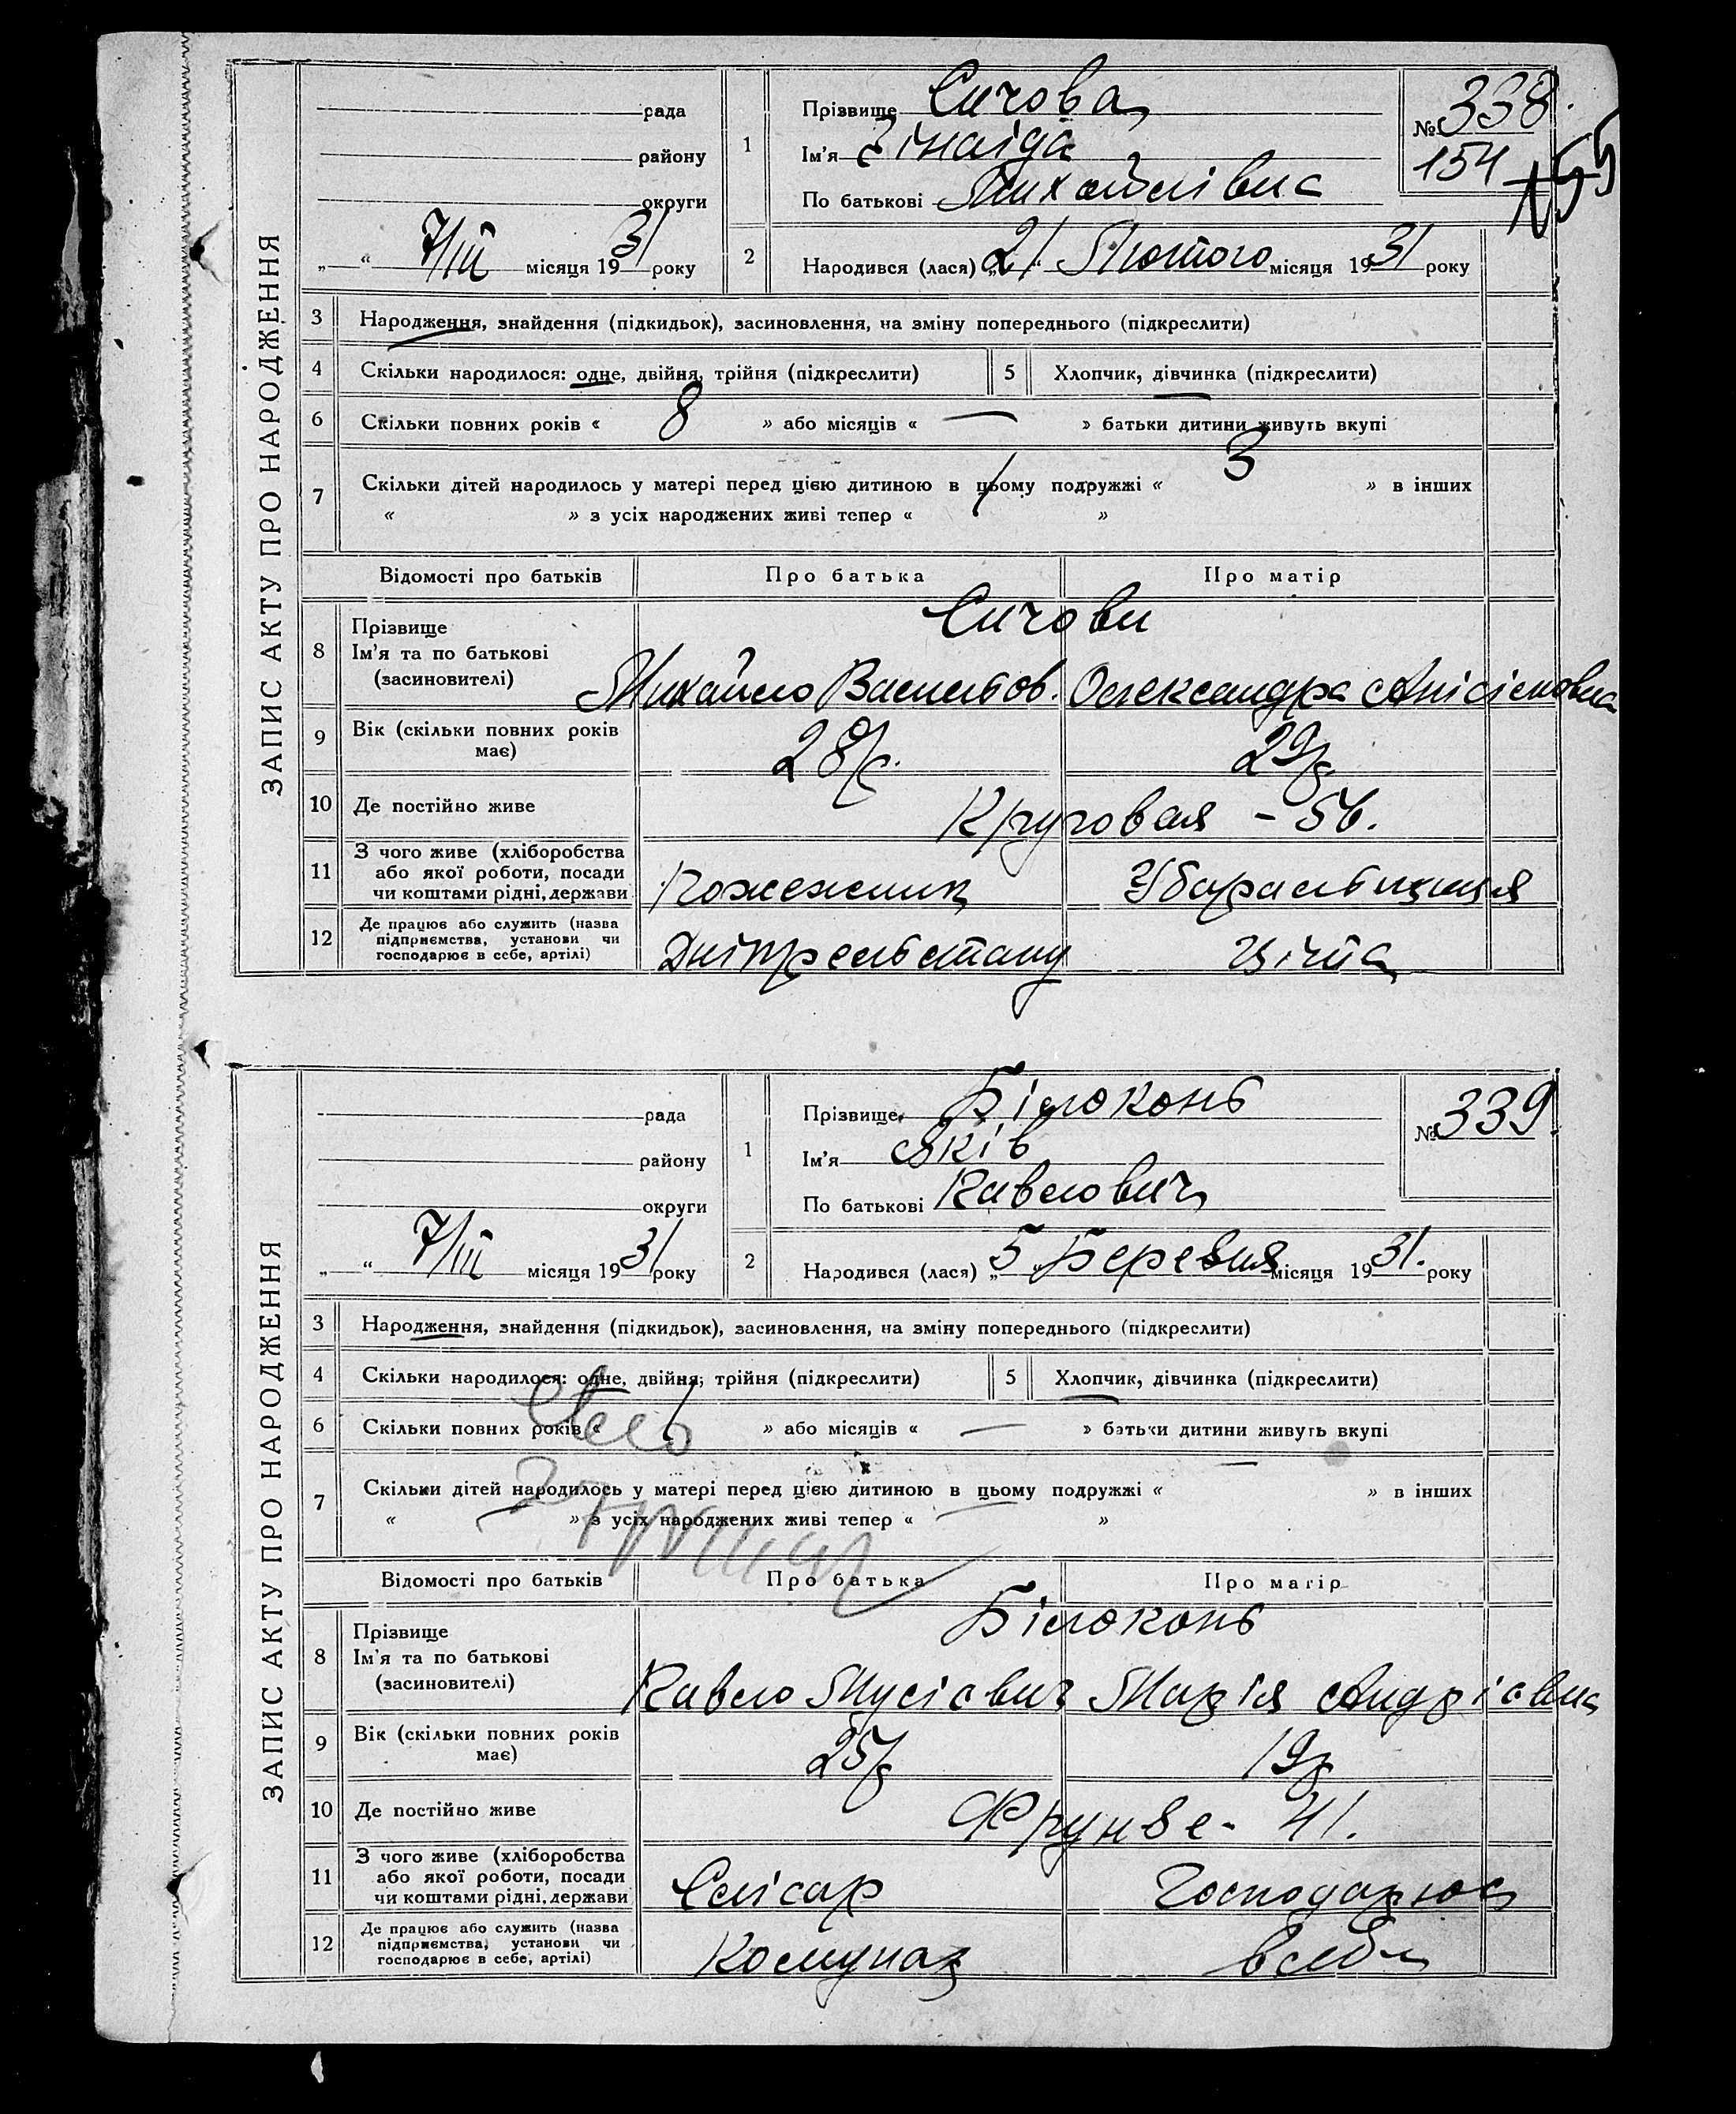 ЗАПИС АКТУ ПРО НАРОДЖЕННЯ
рада
району
округи
„ “ 7/III місяця 1931 року
1
Прізвище Сичова
Ім'я Зінаіда
По батькові Михайлівна
№ 338.
154
2
Народився (лася) „21“ Лютого місяця 1931 року
3 Народження, знайдення (підкидьок), засиновлення, на зміну попереднього (підкреслити)
4 Скільки народилося: одне, двійня, трійня (підкреслити)
5 Хлопчик, дівчинка (підкреслити)
6 Скільки повних років « 8 » або місяців « — » батьки дитини живуть вкупі
7 Скільки дітей народилось у матері перед цією дитиною в цьому подружжі « 3 » в інших
« » з усіх народжених живі тепер « 1 »
Відомості про батьків Про батька Про матір
8 Прізвище
Ім'я та по батькові
(засновителі)
Сичови
Михайло Васильов. Олександра Анісімовна
9 Вік (скільки повних років
має)
28/р. 29/р
10 Де постійно живе
Круговая - 56.
11 З чого живе (хліборобства
або якої роботи, посади
чи коштами рідні, держави
Пожежник Убиральниця
12 Де працює або служить (назва
підприємства, установи чи
господарює в себе, артілі)
Дніпрельстану
ЗАПИС АКТУ ПРО НАРОДЖЕННЯ
рада
району
округи
„ “ 7/III місяця 1931 року
1
Прізвище Білоконь
Ім'я Яків
По батькові Павлович
№ 339.
2
Народився (лася) „5“ Березня місяця 1931. року
3 Народження, знайдення (підкидьок), засиновлення, на зміну попереднього (підкреслити)
4 Скільки народилося: одне, двійня, трійня (підкреслити)
5 Хлопчик, дівчинка (підкреслити)
6 Скільки повних років « 1 » або місяців « — » батьки дитини живуть вкупі
7 Скільки дітей народилось у матері перед цією дитиною в цьому подружжі « — » в інших
« — » з усіх народжених живі тепер « — »
Відомості про батьків Про батька Про матір
8 Прізвище
Ім'я та по батькові
(засиновителі)
Білоконь
Павло Мусієвич Марія Андрієвна
9 Вік (скільки повних років
має)
25/р 19/р
10 Де постійно живе
Фрунзе - 41.
11 З чого живе (хліборобства
або якої роботи, посади
чи коштами рідні, держави
Слісар Господарює
12 Де працює або служить (назва
підприємства, установи чи
господарює в себе, артілі)
Комунар в себе